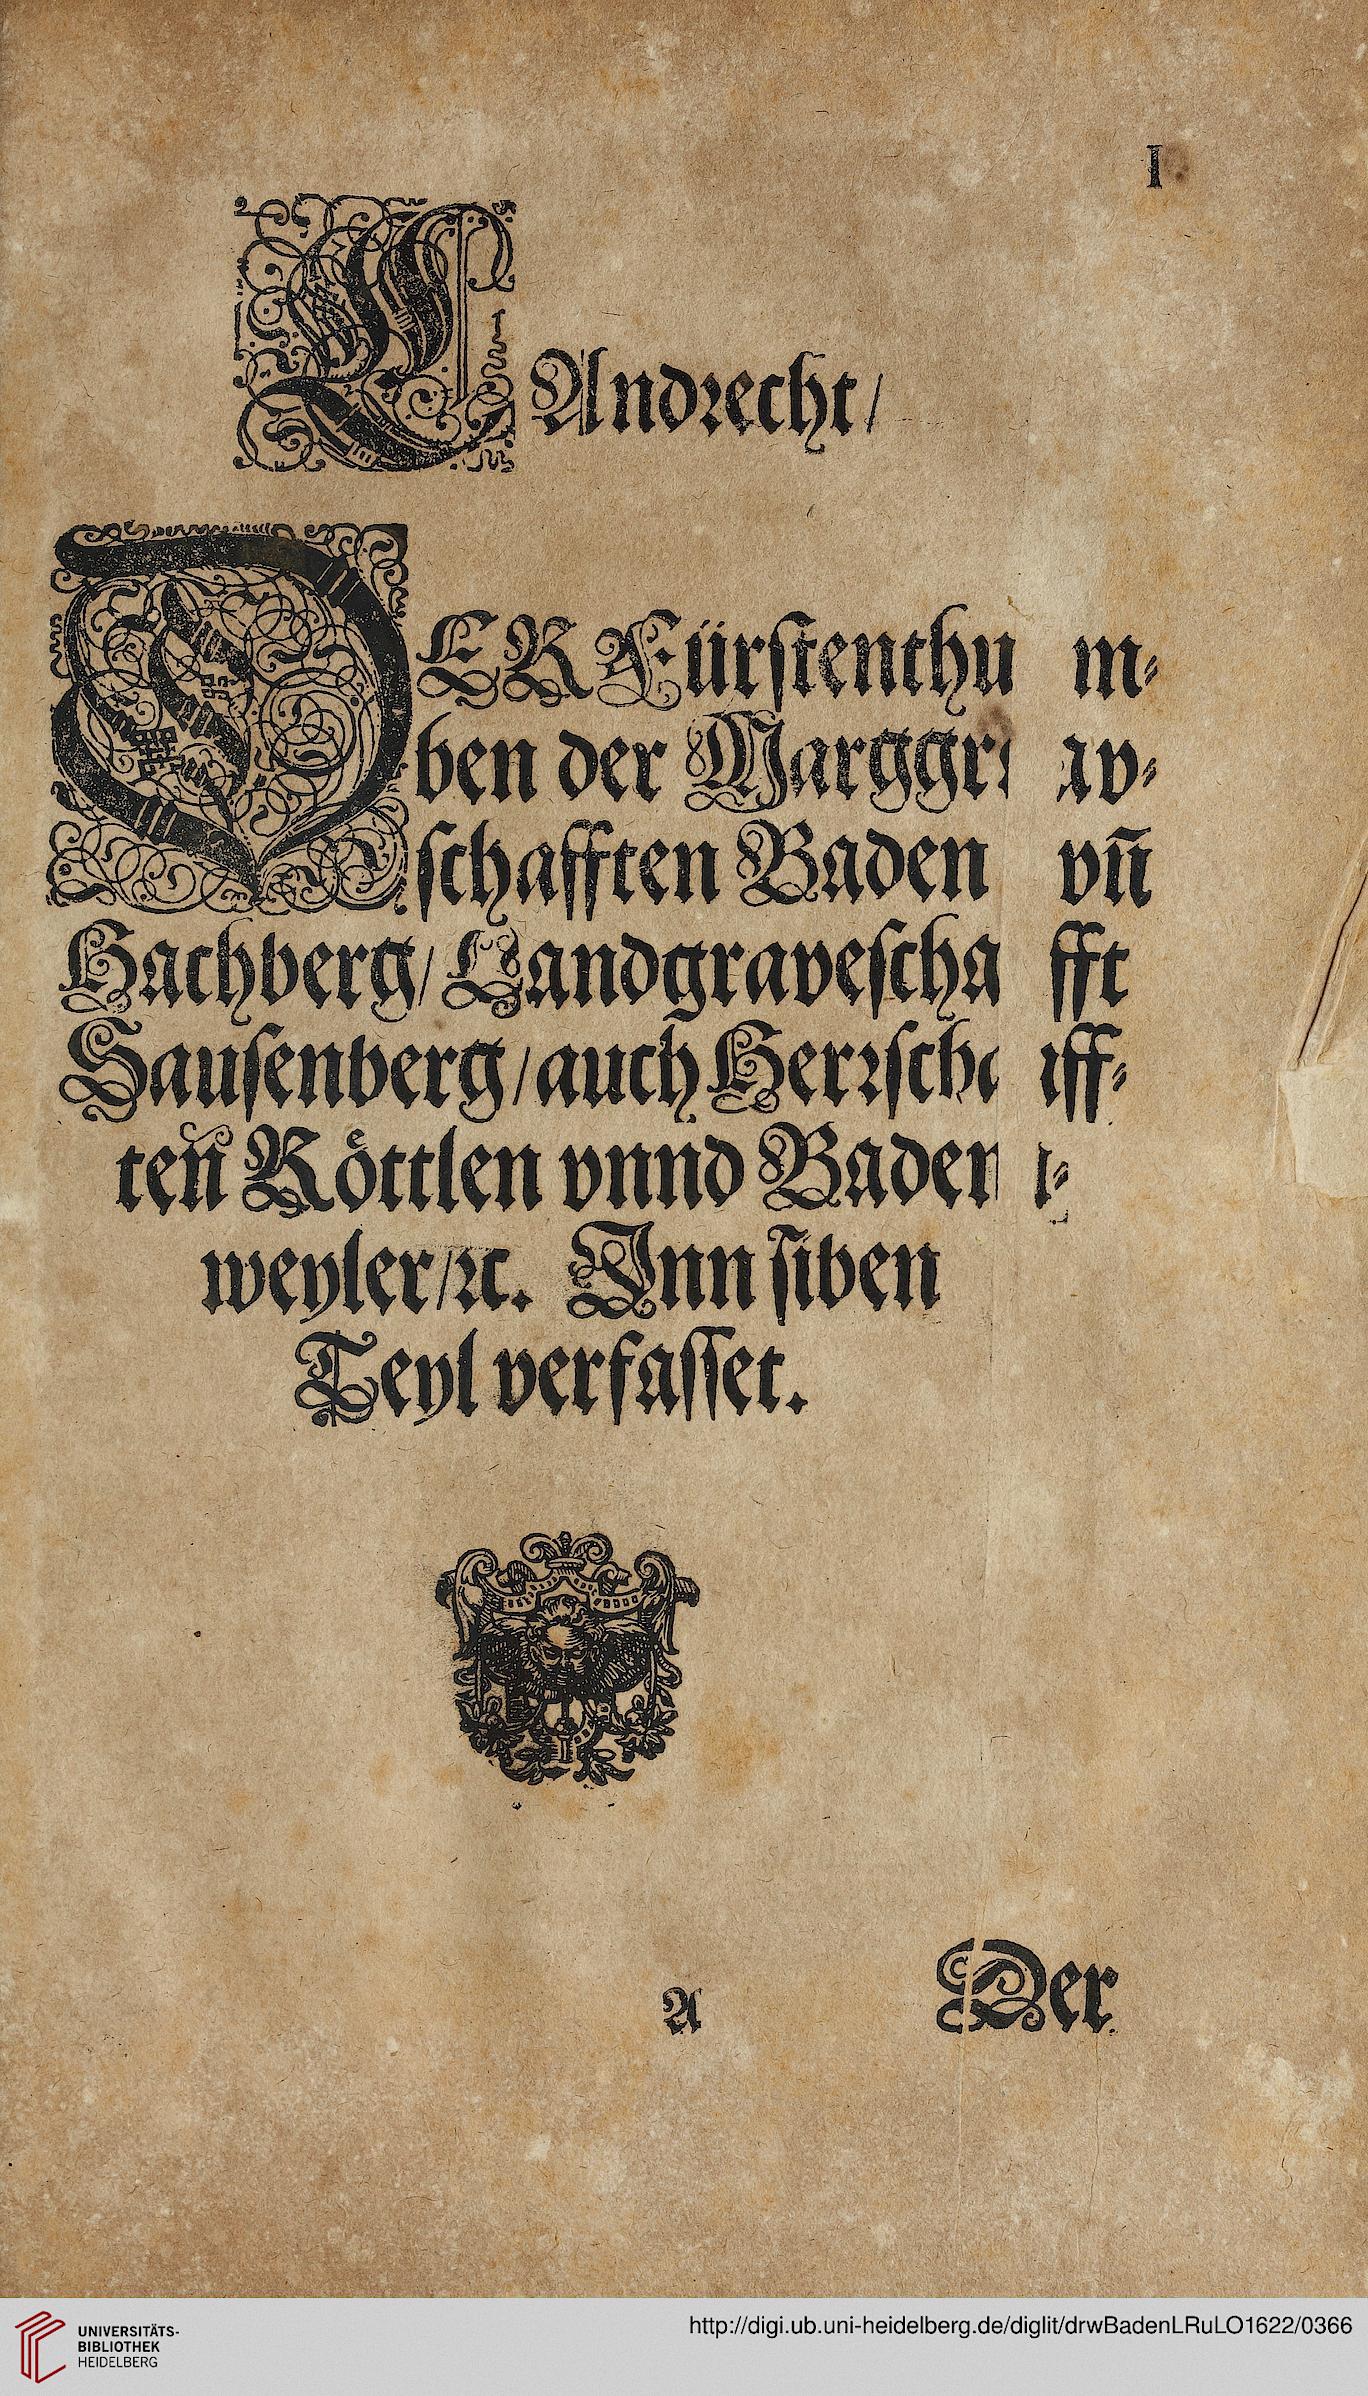 I
LAndrecht/
DER Fürstenthum⸗
ben der Marggrav⸗
schafften Baden vn̄
Hachberg/ Landgraveschafft
Sausenberg/ auch Herrschaff⸗
ten Röttlen vnnd Baden⸗
weyler/ ꝛc. Inn siben
Teyl verfasset.
A
Der
UNIVERSITÄTS-
BIBLIOTHEK
HEIDELBERG
http://digi.ub.uni-heidelberg.de/diglit/drwBadenLRuLO1622/0366